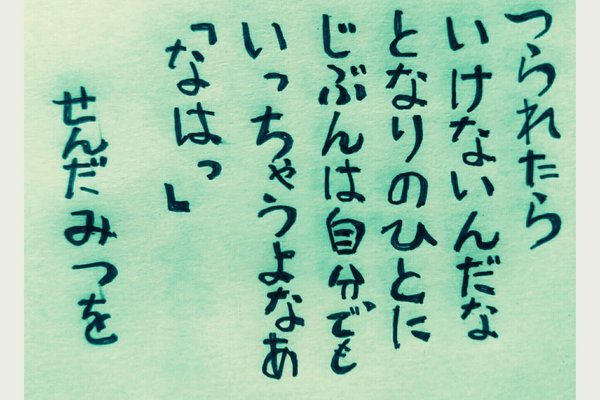 つられたら
いけないんだな
となりのひとに
じぶんは自分でも
いっちゃうよなあ
「なはっ」
せんだみつを